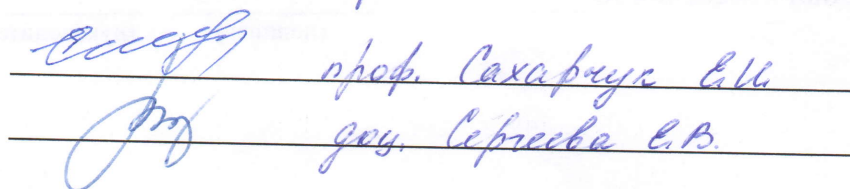 проф. Сахарчук Е.И.
доц. Сергеева Е.В.